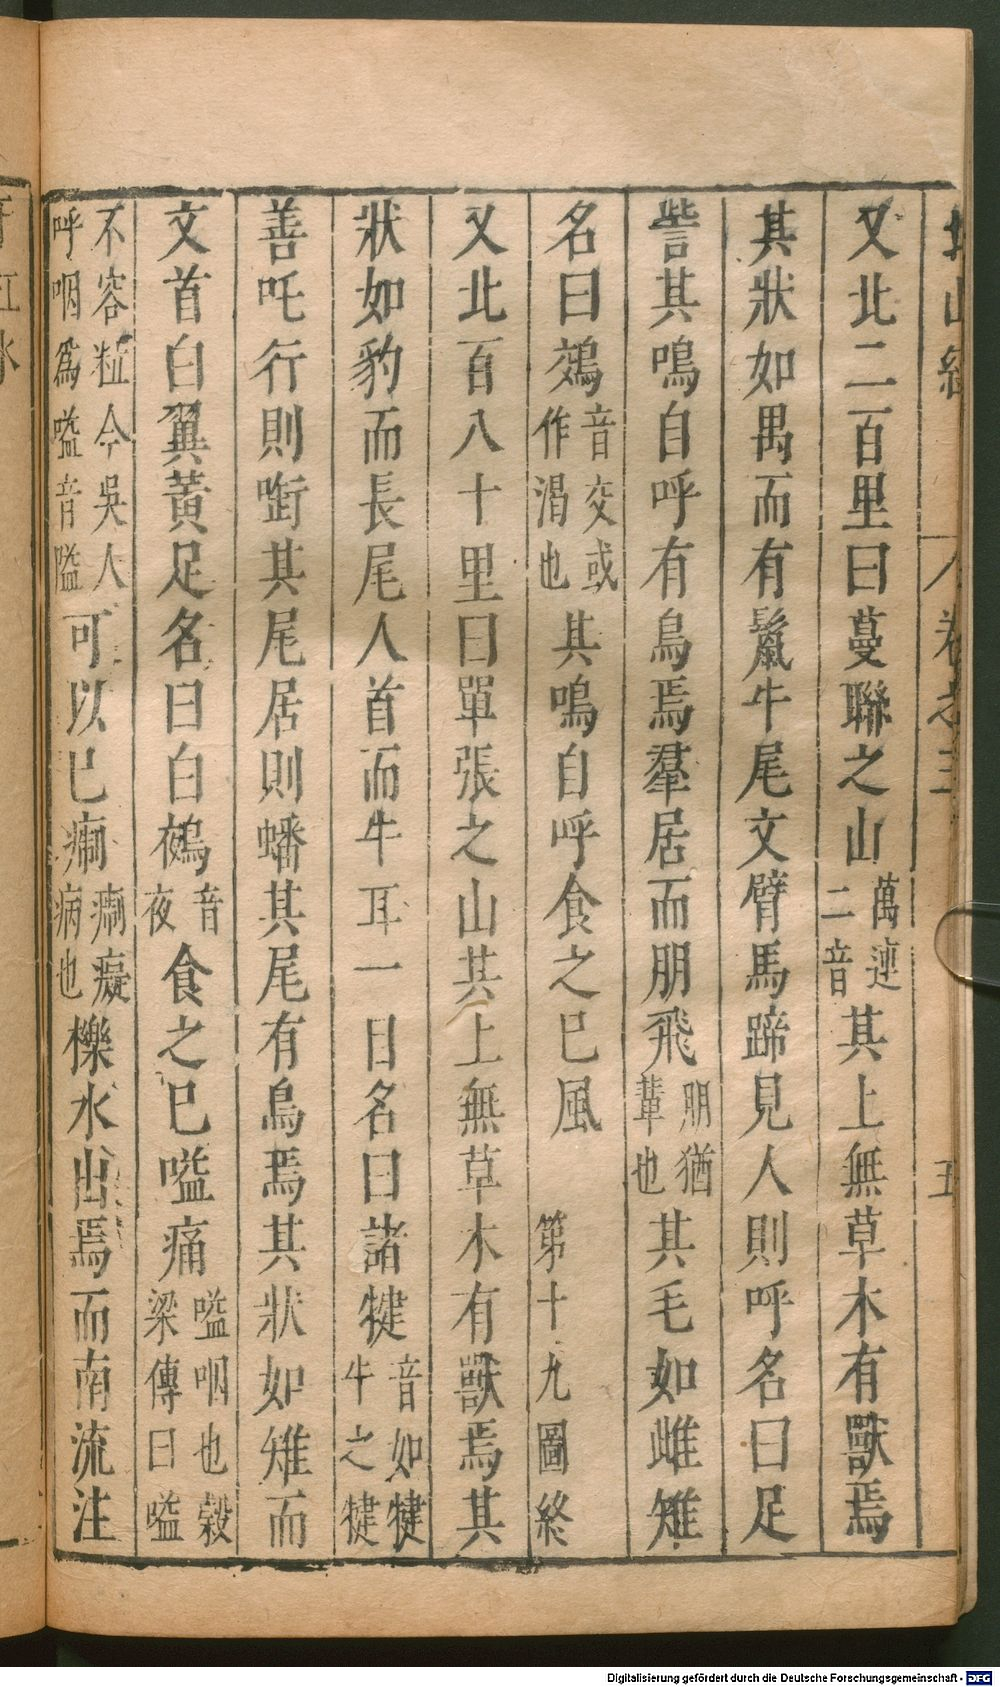 北山經　卷之三　五
又北二百里曰蔓聯之山萬連二音其上無草木有獸焉
其狀如禺而有鬣牛尾文臂馬蹄見人則呼名曰足
訾其鳴自呼有鳥焉羣居而朋飛朋猶輩也其毛如雌雉
名曰鵁音交或作渴也其鳴自呼食之已風　第十九圖終
又北百八十里曰單張之山其上無草木有獸焉其
狀如豹而長尾人首而牛耳一日名曰諸犍音如犍牛之犍
善吒行則銜其尾居則蟠其尾有鳥焉其狀如雉而
文首白翼黃足名曰白鵺音夜食之已嗌痛嗌咽也穀梁傳曰嗌
不容粒今吳人呼咽為嗌音隘可以已痸痸癡病也櫟水出焉而南流注
Digitalisierung gefördert durch die Deutsche Forschungsgemeinschaft - DFG